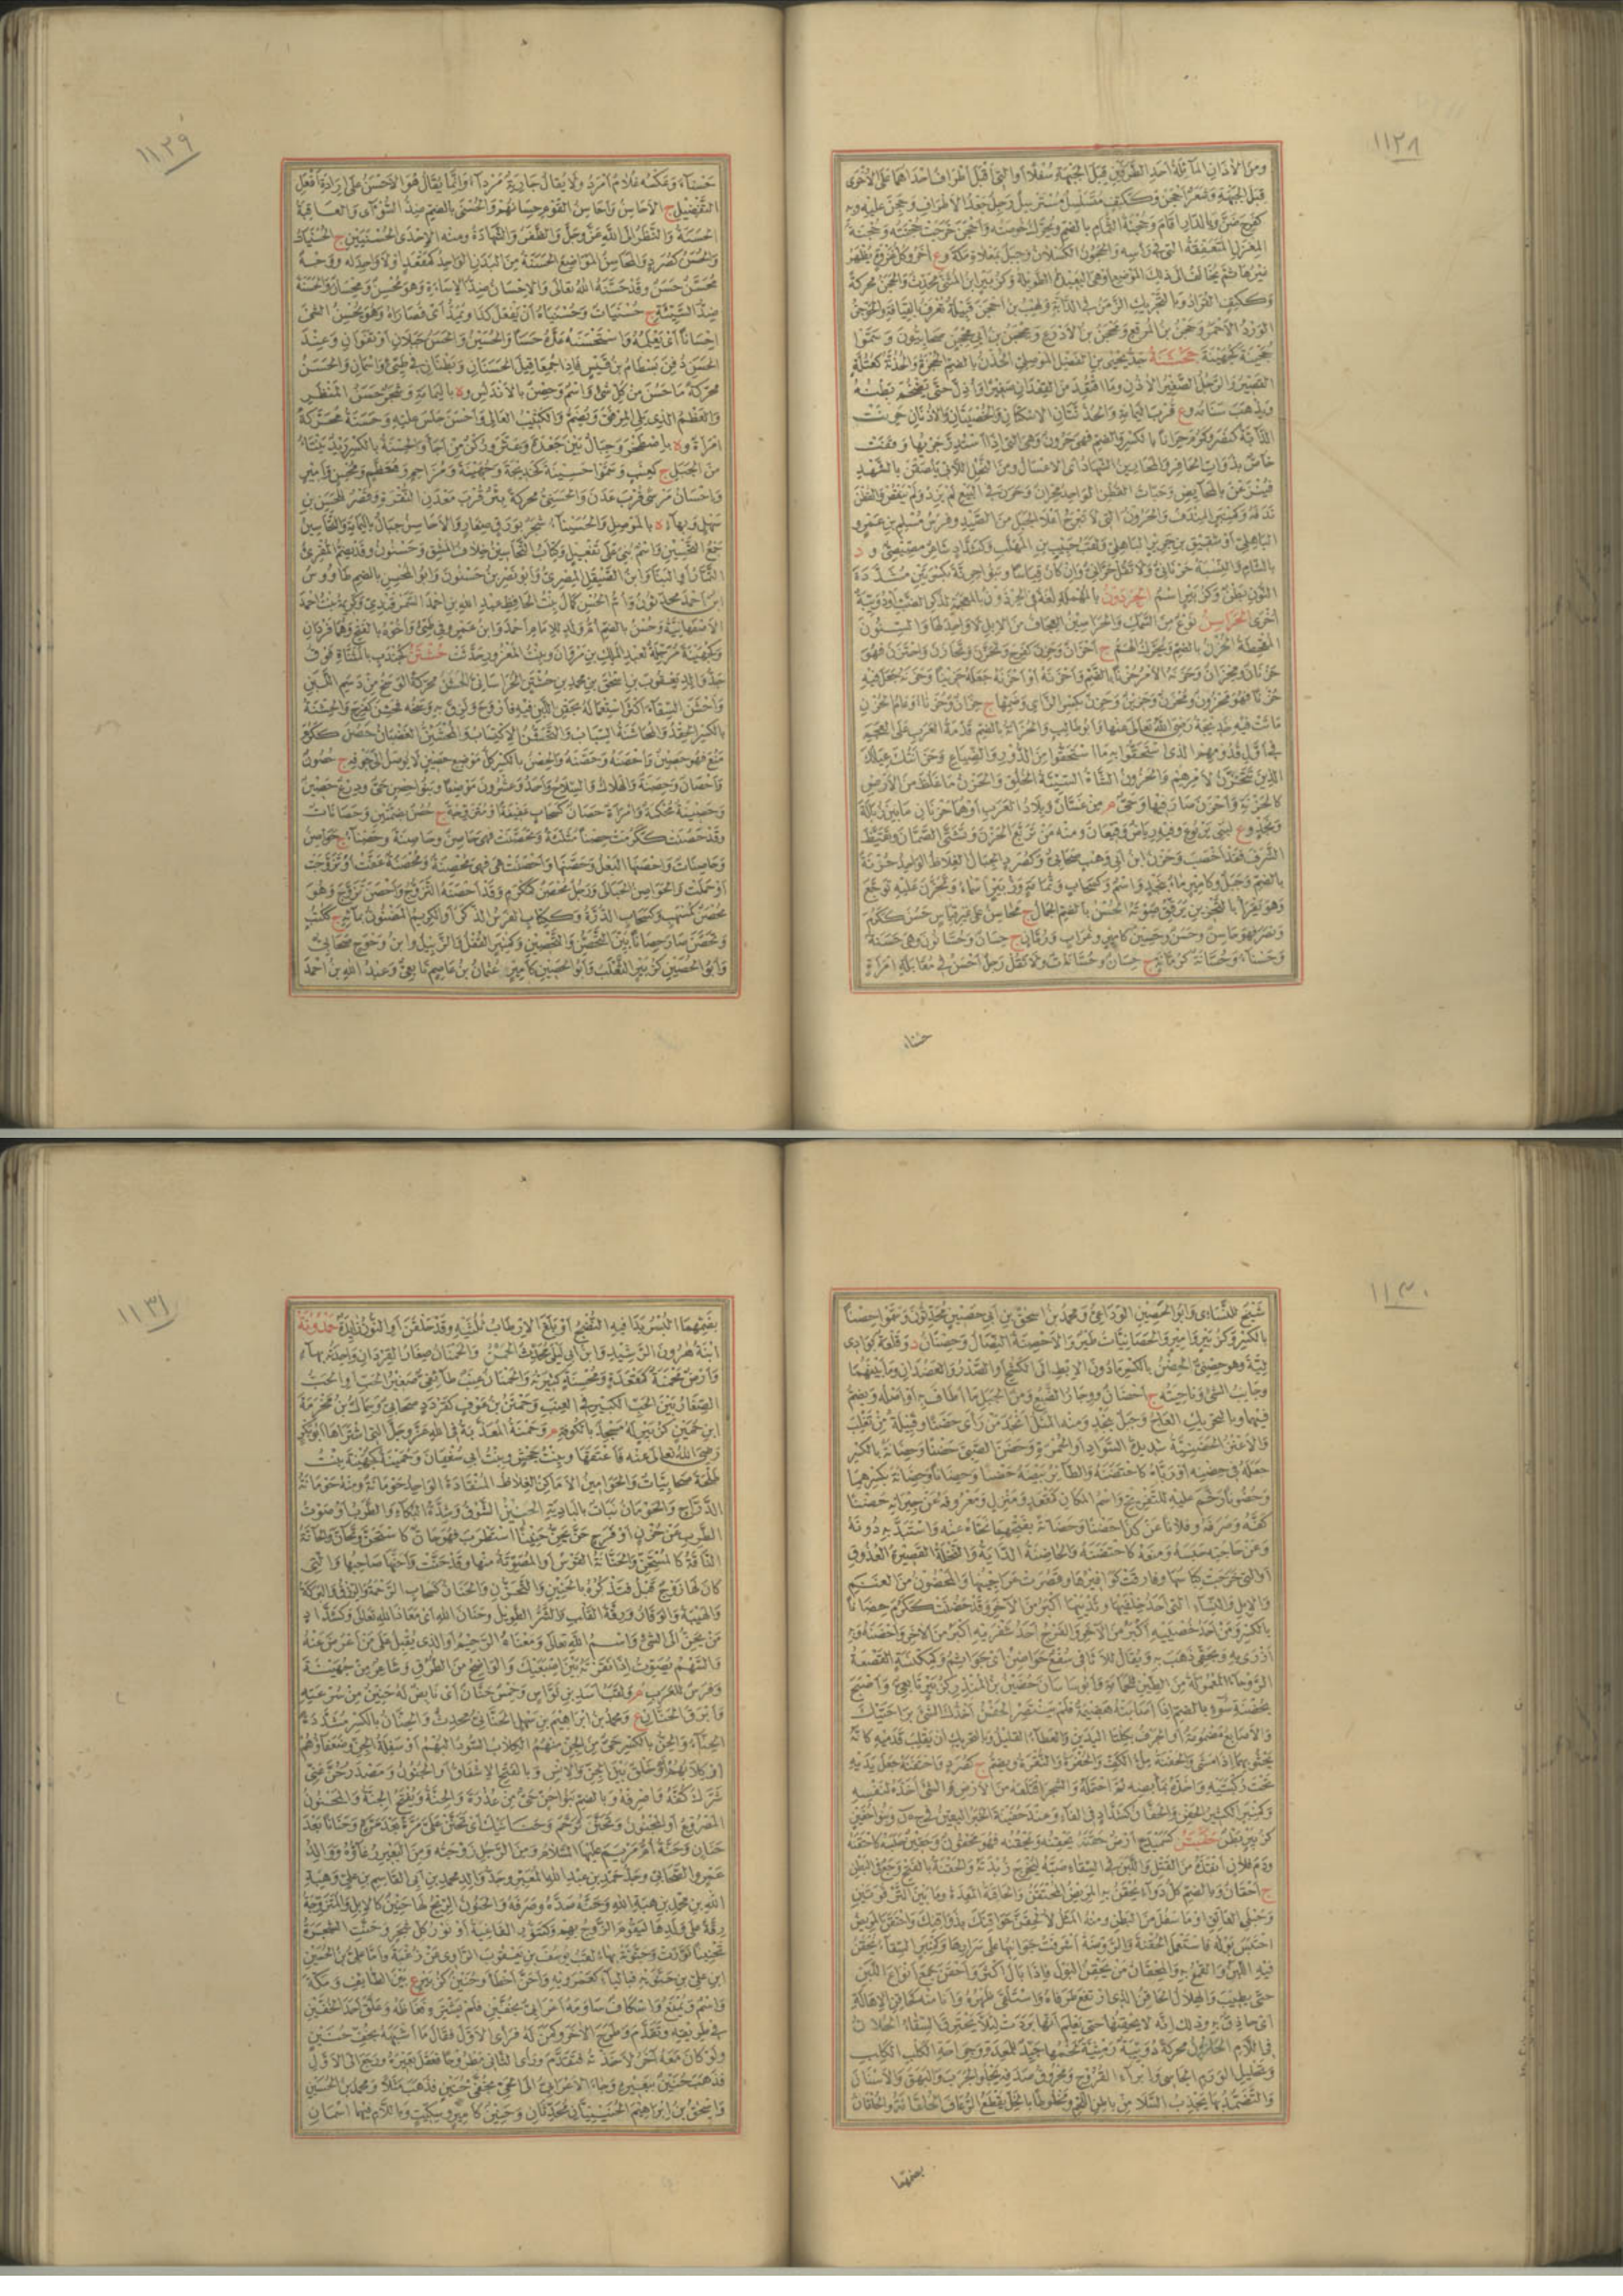 ١١٢٨
ومن الآذان المائلة أحد الطرفين قبل الجبهة سفلا أو التي أقبل أطراف احداهما على الأخرى
قبل الجبهة وشعر أحجن وككتف متسلسل مسترسل رجل جعد الأطراف وحجن عليه وبه
كفرح ضن وبالدار أقام وحجنة الثمام بالضم ويحرك خوصته وأحجن خرجت حجنته وحجنة
المغزل المتعقفة التي في رأسه والحجون الكسلان وجبل بمعلاة مكة وع آخر وكل غزوة يظهر
غيرها ثم يخالف الى ذلك الموضع أو هي البعيدة الطويلة وكزبير ابن المثنى محدث والحجن محركة
وككتف القراد وبالتحريك الزمن في الدابة ولهيب بن أحجن قبيلة تعرف بالعيافة والحوجن
الورد الأحمر وحجن بن المرقع ومحجن بن الأدرع ومحجن بن أبي محجن صحابيون وسموا
حجينة كجهينة جحشنة جد يحيى بن الفضل الموصلي الحذن بالضم الحجزة والحذنة كعتلة
القصير والرجل الصغير الأذن
ع قرب اليمامة والحذنتان الاسكتان والخصيتان والأذنان حرنت
الدابة كنصر وكرم حرانا بالكسر والضم فهي حرون وهي التي اذا استدر جريها وقفت
خاص بذوات الحافر والمحارين الشهاد أي الاعسال ومن النحل اللاتي يلصقن بالشهد
فينزعن بالمحابض وحبات القطن الواحد محران وحرن في البيع لم يزد ولم ينقص والقطن
ندفه وكمنبر المندف والحرون التي لا تبرح أعلا الجبل من الصيد وفرس مسلم بن عمرو
الباهلي أو شقيق بن جرير الباهلي ولقب حبيب بن المهلب وكشداد شاعر مصيصي و د
بالشام والنسبة حرناني ولا تقل حراني وان كان قياسا وبنو حرنة بكسرتين مشددة
النون بطن وكزبير اسم الحردون بالمهملة لغة في الحرذون بالمعجمة لذكر الضب أو دويبة
أخرى الحراسين نوع من السمك والحراسين العجاف من الابل لا واحد لها والسنون
المقحطة الحزن بالضم ويحرك الهم ج أحزان وحزن كفرح وتحزن وتحازن واحتزن فهو
حزنان ومحزان وحزنه الأمر حزنا بالضم وأحزنه أو أحزنه جعله حزينا وحزنه جعل فيه
حزنا فهو محزون ومحزن وحزين وحزن بكسر الزاي وضمها ج حزان وحزناء وعام الحزن
ماتت فيه خديجة رضي الله تعالى عنها وأبو طالب والحزانة بالضم قدمة العرب على العجم
في أول قدومهم الذي استحقوا به ما استحقوا من الدور والضياع وحزانتك عيالك
الذين تتحزن لأمرهم والحزون الشاة السيئة الخلق والحزن ما غلظ من الأرض
كالحزنة وأحزن صار فيها وحي م من غسان وبلاد العرب أو هما حزنان ما بين زبالة
ونجد وع لبني يربوع وفيه رياض وقيعان ومنه من تربع الحزن وتشتى الصمان وتقيظ
الشرف فقد أخصب وحزن بن أبي وهب صحابي وكصرد الجبال الغلاظ الواحد حزنة
بالضم وجبل وكأمير ماء بنجد واسم وكسحاب وثمامة وزبير أسماء وتحزن عليه توجع
وهو يقرأ بالتحزين يرقق صوته الحسن بالضم الجمال ج محاسن على غير قياس حسن ككرم
ونصر فهو حاسن وحسن وحسين كأمير وغراب ورمان ج حسان وحسانون وهي حسنة
وحسناء وحسانة كرمانة ج حسان وحسانات ولا تقل رجل أحسن في مقابلة امرأة
حسناء
١١٢٩
حسناء وعكسه غلام أمرد ولا يقال جارية مرداء وانما يقال هو الأحسن على ارادة أفعل
التفضيل ج الأحاسن وأحاسن القوم حسانهم والحسنى بالضم ضد السوأى والعاقبة
الحسنة والنظر الى الله عز وجل والظفر والشهادة ومنه الا احدى الحسنيين ج الحسنيات
والحسن كصرد والمحاسن المواضع الحسنة من البدن الواحد كمقعد أو لا واحد له ووجه
محسن حسن وقد حسنه الله تعالى والاحسان ضد الاساءة وهو محسن ومحسان والحسنة
ضد السيئة ج حسنات وحسيناؤه أن يفعل كذا ويمد أي قصاراه وهو يحسن الشئ
احسانا أي يعلمه واستحسنه عده حسنا والحسين والحسن جبلان أو نقوان وعند
الحسن دفن بسطام بن قيس فاذا جمعا قيل الحسنان وبطنان في طيئ واسمان والحسن
محركة ما حسن من كل شئ واسم وحصن بالأندلس وة باليمامة وشجر حسن المنظر
والعظم الذي يلي المرفق ويضم والكثيب العالي وأحسن جلس عليه وحسنة محركة
امرأة وة باصطخر وجبال بين صعدة وعثر وركن من أجأ والحسنة بالكسر ريد ينتأ
من الجبل ج كعنب وسموا حسينة كخديجة وجهينة ومزاحم ومعظم ومحسن وأمير
واحسان مرسى قرب عدن والحسنى محركة بئر قرب معدن النقرة وقصر للحسن بن
سهل وبهاء ة بالموصل والحسيناء شجر بورق صغار والأحاسن جبال باليمامة والتحاسين
جمع التحسين اسم بني على تفعيل وكتاب التحاسين خلاف المشق وحسنون وقد يضم المقرئ
التمار أو البنا وابن الصيقل المصري وأبو نصر بن حسنون وأبو الحسن بالضم طاووس
ابن أحمد محدثون وأم الحسن كمال بنت الحافظ عبد الله بن أحمد السمرقندي وكريمة بنت أحمد
الأصفهانية وحسن بالضم أم ولد للامام أحمد
جد والد يعقوب بن اسحق بن محمد بن حشتن الخراساني الحشن محركة الوسخ من دسم اللبن
بالكسر الحقد والمحاشنة السباب والتحشن الاكتساب والمحشئن الغضبان حصن ككرم
منع فهو حصين وأحصنه وحصنه والحصن بالكسر كل موضع حصين لا يوصل الى جوفه ج حصون
وأحصان وحصنة والهلاك والسلاح وأحد وعشرون موضعا وبنو حصن حي ودرع حصين
وحصينة محكمة وامرأة حصان كسحاب عفيفة أو متزوجة ج حصن بضمتين وحصانات
وقد حصنت ككرمت حصنا مثلثة وتحصنت فهي حاصن وحاصنة وحصناء ج حواصن
وحاصنات وأحصنها البعل وحصنها وأحصنت هي فهي محصنة ومحصنة عفت أو تزوجت
أو حملت والحواصن الحبالى ورجل محصن كمكرم وقد أحصنه التزوج وأحصن تزوج وهو
محصن كمسهب وكسحاب الدرة وككتاب الفرس الذكر أو الكريم المضنون بمائه ج ككتب
وتحصن صار حصانا بين التحصن والتحصين وكمنبر القفل والزبيل وابن وحوح صحابي
وأبو الحصين كزبير الثعلب وأبو الحصين كأمير عثمان بن عاصم تابعي وعبد الله بن أحمد
١١٣٠
شيخ للنسائي وأبو الحصين الوادعي ومحمد بن اسحق بن أبي حصين محدثون وسموا حصنا
بالكسر وكزبير وأمير والحصانيات طير والأحصنة النصال وحصنان د وقلعة بوادي
لية وهو حصني الحضن بالكسر ما دون الابط الى الكشح أو الصدر والعضدان وما بينهما
وجانب الشئ وناحيته ج أحضان ووجار الضبع ومن الجبل ما أطاف به أو أصله ويضم
فيهما وبالتحريك العاج وجبل بنجد ومنه المثل أنجد من رأى حضنا وقبيلة من تغلب
والأعنز الحضنية شديدة السواد أو الحمرة وحضن الصبي حضنا وحضانة بالكسر
جعله في حضنه أو رباه كاحتضنه والطائر بيضه حضنا وحضانا وحضانة بكسرهما
وحضونا رخم عليه للتفريخ واسم المكان كمقعد ومنزل ومعروفه عن جيرانه حضنا
كفه وصرفه وفلانا عن كذا حضنا وحضانة بفتحهما نحاه عنه واستبد به دونه
وعن حاجته حبسه ومنعه كاحتضنه والحاضنة الداية والنخلة القصيرة العذوق
أو التي خرجت كبائسها وفارقت كوافيرها وقصرت عراجينها والحضون من الغنم
والابل والنساء التي أحد خلفيها أو ثدييها أكبر من الآخر وقد حضنت ككرم حضانا
بالكسر ومن أحد خصييه أكبر من الآخر والفرج أحد شفريه أكبر من الآخر وأحضنه وبه
أزرى به وبحقي ذهب به ويقال للأثافي سفع حواضن أي جواثم وكمكنسة القصعة
الروحاء المعمولة من الطين للحمامة وأبو ساسان حضين بن المنذر كزبير تابعي وأصبح
والأصابع مضمومة أو الجرف بكلتا اليدين والعطاء القليل وبالتحريك أن يقلب قدميه كأنه
يحثو بهما اذا مشى والحفنة ملء الكف والحفرة والنقرة ويضم ج كصرد واحتفنه جعل يديه
تحت ركبتيه وأخذه بمأبضه ثم احتمله والشجر اقتلعه من الأرض والشئ أخذه لنفسه
حقنه يحقنه ويحقنه فهو محقون وحقين حبسه كاحتقنه
ودم فلان أنقذه من القتل واللبن في السقاء صبه ليخرج زبدته والحقنة بالفتح وجع في البطن
ج أحقان وبالضم كل دواء يحقن به المريض المحتقن والحاقنة المعدة وما بين الترقوتين
وحبلي العاتق أو ما سفل من البطن ومنه المثل لألحقن حواقنك بذواقنك واحتقن المريض
احتبس بوله فاستعمل الحقنة والروضة أشرفت جوانبها على سرارها وكمنبر السقاء يحقن
فيه اللبن والقمع به والمحقان من يحقن البول فاذا بال أكثر وأحقن جمع أنواع اللبن
حتى يطيب والهلال الحاقن الذي ارتفع طرفاه واستلقى ظهره وأنا منه كحاقن الاهالة
أي حاذق به وذلك أنه لا يحقنها حتى يعلم أنها بردت لئلا يحترق السقاء الحلان
في اللام الحلزون محركة دويبة رمثية
بعضهما
١١٣١
حمدونة
ابنة هرون الرشيد وابن أبي ليلى محدث الحمن والحمنان صغار القردان واحدته بهاء
وأرض محمنة كمقعدة ومحسنة كثيرته والحمنان عنب طائفي أو الحب
الصغار بين الحب الكبير في العنب وحمنن بن عوف كقردد صحابي وسماك بن مخرمة
ابن حمين كزبير له مسجد بالكوفة م وحمنة المعذبة في الله عز وجل التي اشتراها أبو بكر
رضي الله تعالى عنه فأعتقها وبنت جحش وبنت أبي سفيان وحمينة كجهينة بنت
طلحة صحابيات والحوامين الأماكن الغلاظ المنقادة الواحد حومانة ومنه حومانة
الدراج والحومان نبات بالبادية الحنين الشوق وشدة البكاء والطرب أو صوت
الطرب عن حزن أو فرح حن يحن حنينا استطرب فهو حان كاستحن وتحان والحانة
الناقة كالمستحن والحنانة القوس أو المصوتة منها وقد حنت وأحنها صاحبها والتي
كان لها زوج قبل فتذكره بالحنين والتحزن والحنان كسحاب الرحمة والرزق والبركة
والهيبة والوقار ورقة القلب والشر الطويل وحنان الله أي معاذ الله تعالى وكشداد
من يحن الى الشئ واسم الله تعالى ومعناه الرحيم أو الذي يقبل على من أعرض عنه
والسهم يصوت اذا نقرته بين اصبعيك والواضح من الطرق وشاعر من جهينة
وفرس للعرب م ولقب أسد بن نواس وخمس حنان أي بائص له حنين من سرعته
وأبرق الحنان ع ومحمد بن ابراهيم بن سهل الحناني محدث والحنان بالكسر مشددة
الحناء والحن بالكسر حي من الجن منهم الكلاب السود البهم أو سفلة الجن وضعفاؤهم
أو كلابهم أو خلق بين الجن والانس وبالفتح الاشفاق أو الجنون ومصدر حن عني
شرك كفه واصرفه وبالضم بنو حن حي من عذرة والحنة ويفتح الجنة والمحنون
المصروع أو المجنون وتحنن ترحم وحنانيك أي تحنن علي مرة بعد مرة وحنانا بعد
حنان وحنة أم مريم عليها السلام ومن الرجل زوجته ومن البعير رغاؤه ووالد
عمرو الصحابي وجد حمد بن عبد الله المعبر وجد والد محمد بن أبي القاسم بن علي وهبة
الله بن محمد بن هبة الله وحنه صده وصرفه والحنون الريح لها حنين كالابل والمتزوجة
رقة على ولدها ليقوم الزوج بهم وكتنور الفاغية أو نور كل شجر وحننت الشجرة
تحنينا نورت وحنونة بهاء لقب يوسف بن يعقوب الراوي عن زغبة وأما علي بن الحسين
ابن علي بن حنويه فبالياء كعمرويه وأحن أخطأ وحنين كزبير ع بين الطائف ومكة
واسم ويمنع واسكاف ساومه أعرابي بخفين فلم يشتره فغاظه وعلق أحد الخفين
في طريقه وتقدم وطرح الآخر وكمن له فرأى الأول فقال ما أشبهه بخف حنين
ولو كان معه آخر لأخذته فتقدم ورأى الثاني مطروحا فعقل بعيره ورجع الى الأول
فذهب حنين ببعيره وجاء الأعرابي الى الحي بخفي حنين فذهب مثلا ومحمد بن الحسين
واسحق بن ابراهيم الحنينيان محدثان وحنين كأمير وسكيت وباللام فيهما اسمان